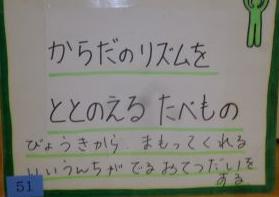 からだのリズムを
ととのえる たべもの
びょうきから まもってくれる
いいうんちがでるおてつだいを
する
51